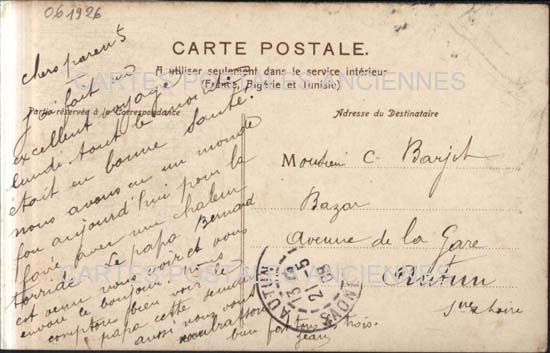 061926
CARTE POSTALE.
A utiliser seulement dans le service intérieur
(France, Algérie et Tunisie)
CARTES POSTALES ANCIENNES
Partie réservée à la Correspondance
Adresse du Destinataire
chers parents
j'ai fait un
excellent voyage
lundi tout le monde
était en bonne santé.
nous avons eu un monde
fou aujourd'hui pour la
avec une chaleur
torride. Le papa Bernard
est venu nous voir et vous
envoie le bonjour. nous
comptons bien voir le
papa cette semaine
aussi nous vous
embrassons
bien fort tous trois.
Jean
Monsieur C. Barjot
Bazar
Avenue de la Gare
Autun
Sne & Loire
CARTES POSTALES ANCIENNES
AUTUN
21-5